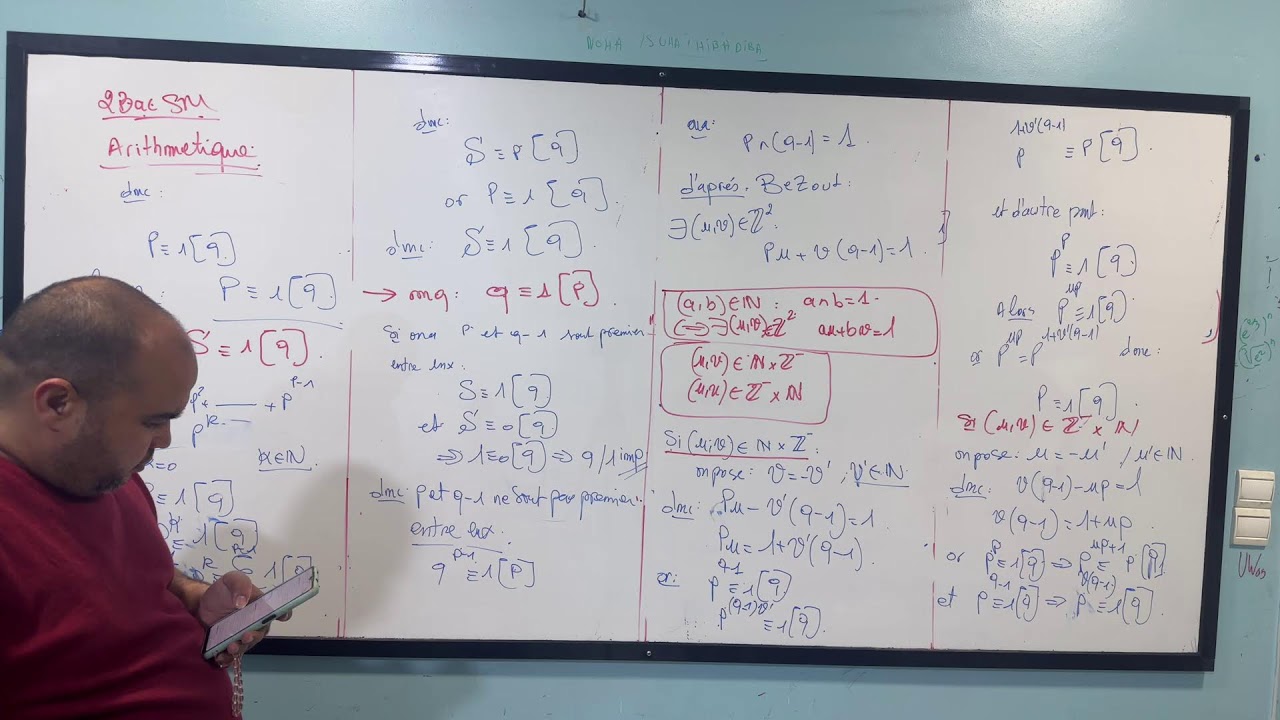 2Bac SM
Arithmetique
dmc:
P≡1[q]
P≡1[q]
S≡1[q].
+ P^{P-1}
α∈ℕ
≡1[q]
1[q]
1[q]
dmc:
S≡P[q]
or P≡1[q].
dmc: S≡1[q].
→ mq: q≡1[P].
Si ona P et q-1 sont premier
entre eux.
S≡1[q]
et S≡0[q]
⇒ 1≡0[q] ⇒ q/1 imp
dmc: P et q-1 ne sont pas premier
entre eux.
q^{P-1}≡1[P]
ona:
P∧(q-1)=1.
d'aprés. BeZout:
∃(u,v)∈ℤ².
Pu+v(q-1)=1.
(a,b)∈ℕ : a∧b=1.
⟺∃(u,v)∈ℤ² au+bv=1
(u,v)∈ℕ×ℤ⁻
(u,v)∈ℤ⁻×ℕ
Si (u,v)∈ℕ×ℤ⁻
on pose: v=-v', v'∈ℕ
dmc: Pu-v'(q-1)=1.
Pu=1+v'(q-1)
or: P^{q-1}≡1[q]
P^{(q-1)v'}≡1[q].
P^{1+v'(q-1)}≡P[q].
et d'autre part:
P^{P}≡1[q]
Alors P^{uP}≡1[q].
or P^{uP}=P^{1+v'(q-1)} donc:
P≡1[q]
Si (u,v)∈ℤ⁻×ℕ
on pose: u=-u' / u'∈ℕ.
dmc: v(q-1)-up=1
v(q-1)=1+up.
or P^{P}≡1[q] ⇒ P^{up+1}≡P[q]
et P^{q-1}≡1[q] ⇒ P^{v(q-1)}≡1[q].